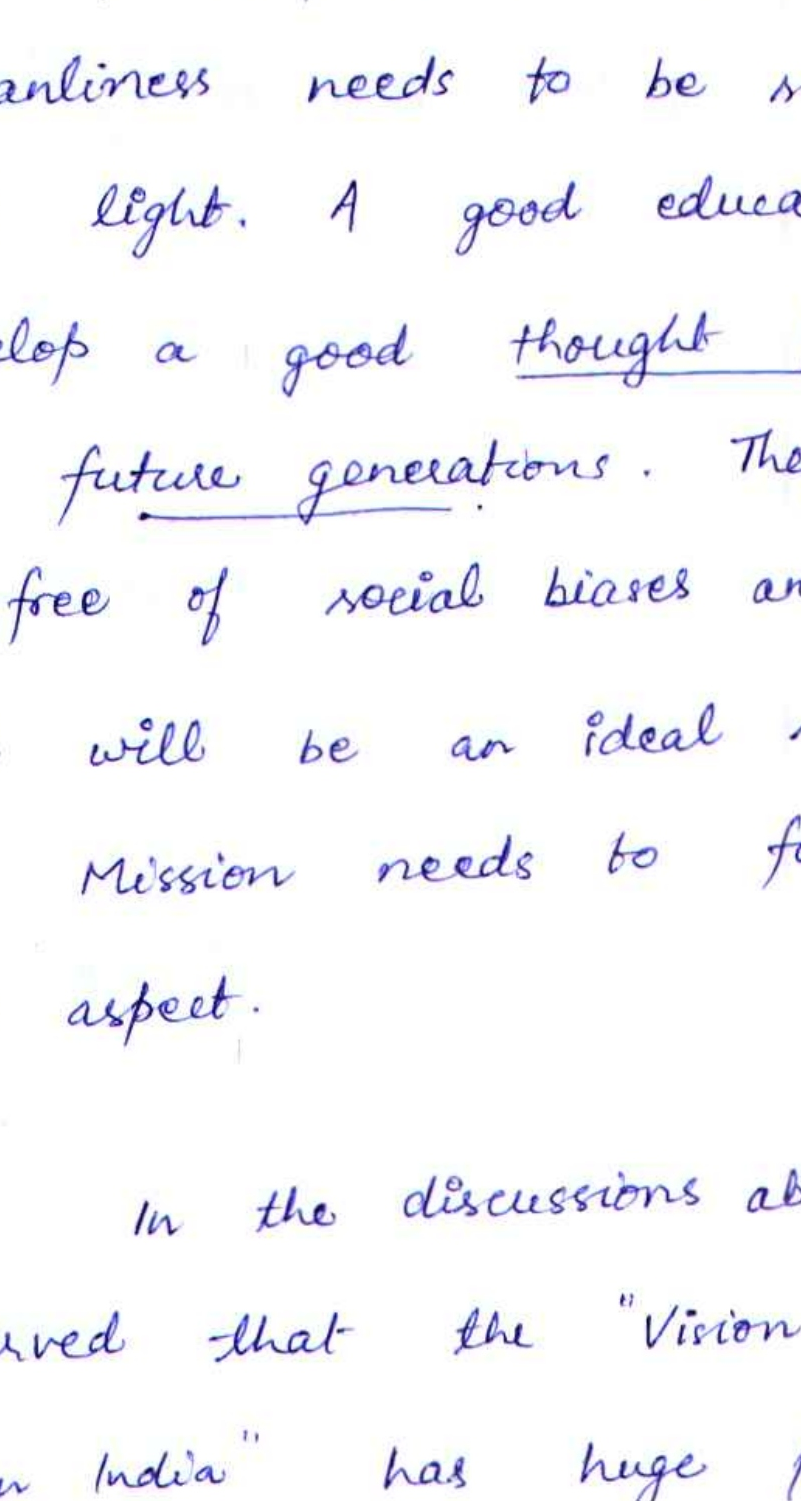 anliness needs to be
light. A good educa
elop a good thought
future generations. The
free of social biases an
will be an ideal
Mission needs to fo
aspect.
In the discussions ab
rved that the "Vision
India" has huge